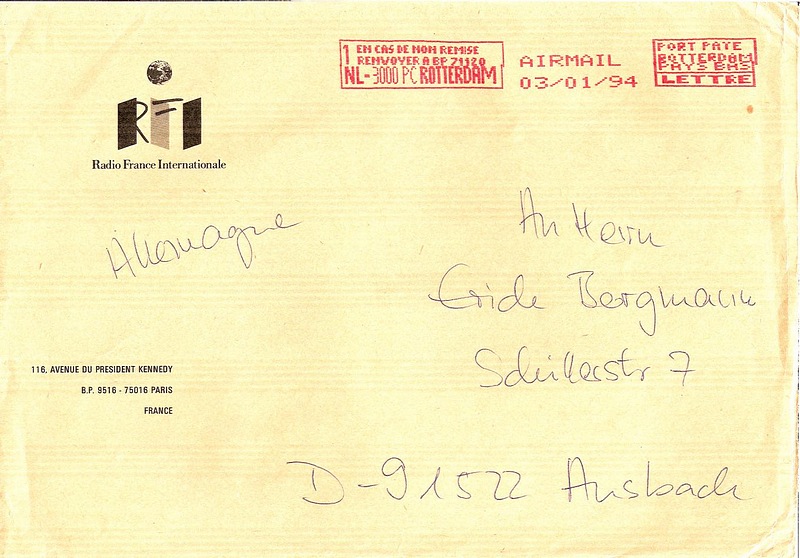 1 EN CAS DE NON REMISE
RENVOYER A BP 71120
NL-3000 PC ROTTERDAM
AIRMAIL
03/01/94
PORT PAYE
ROTTERDAM
PAYS BAS
LETTRE
RFI
Radio France Internationale
Allemagne
An Herrn
Erich Bergmann
Schillerstr 7
D-91522 Ansbach
116, AVENUE DU PRESIDENT KENNEDY
B.P. 9516 - 75016 PARIS
FRANCE